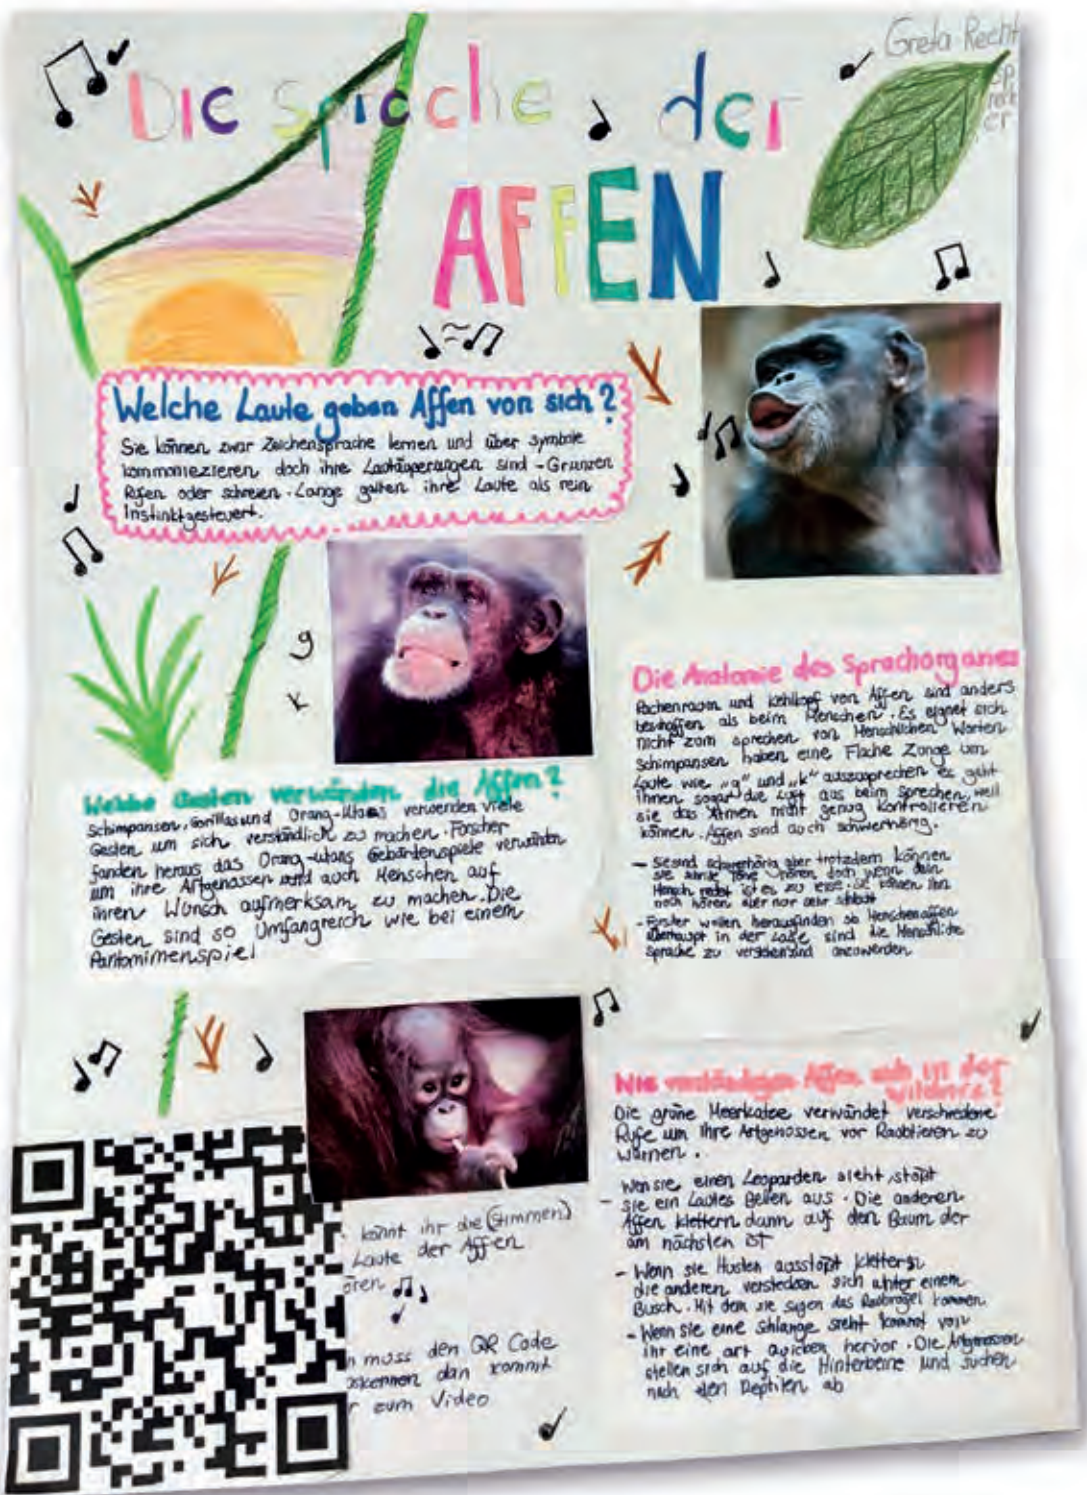 Greta Recht
sp
rech
er
Die Sprache der
AFFEN
Welche Laute geben Affen von sich?
Sie können zwar Zeichensprache lernen und über symbole
kommoniezieren doch ihre Lautäuperungen sind - Grunzen
Rufen oder schreien. Lange galten ihre Laute als rein
Instinktgesteuert.
g
k
Welche Gesten verwänden die Affen?
Schimpansen, Gorillas und Orang-Utans verwenden viele
Gesten um sich verständlich zu machen. Forscher
fanden heraus das Orang-utans Gebärdenspiele verwänden
um ihre Artgenossen und auch Menschen auf
ihren Wunsch aufmerksam zu machen. Die
Gesten sind so Umfangreich wie bei einem
Pantomimenspiel
Die Anatomie des Sprachorganes
Rachenraum und Kehlkopf von Affen sind anders
beschaffen als beim Menschen. Es eignet sich
nicht zum sprechen von Menschlichen Worten
Schimpansen haben eine Flache Zunge um
Laute wie „g" und „k" auszusprechen es geht
ihnen sogar die Luft aus beim Sprechen, weil
sie das Atmen nicht genug Kontrollieren
können. Affen sind auch schwerhörig.
- Sie sind schwerhörig aber trotzdem können
sie Töne hören doch wenn dein
Mensch redet ist es zu leise. Sie können ihn
noch hören aber nur sehr
- Forster wollen herausfinden ob Menschenaffen
überhaupt in der Lage sind die Menschliche
Sprache zu verstehen und anzuwerden
Wie verständigen Affen sich in der
wildnis?
Die grüne Meerkatze verwändet verschiedene
Rufe um Ihre Artgenossen vor Raubtieren zu
warnen.
- Wen sie einen Leoparden sieht, stößt
sie ein Lautes Bellen aus. Die anderen
Affen klettern dann auf den Baum der
am nächsten ist
- Wenn sie Husten ausstößt
die anderen verstecken sich unter einem
Busch. Mit dem sie sagen das Raubvögel kommen
- Wenn sie eine Schlange sieht kommt von
ihr eine art quicken hervor. Die Artgenossen
stellen sich auf die Hinterbeine und suchen
nach den Reptilen ab
könnt ihr die (Stimmen)
Laute der Affen
ören
muss den QR Code
kennen dan kommt
r zum Video